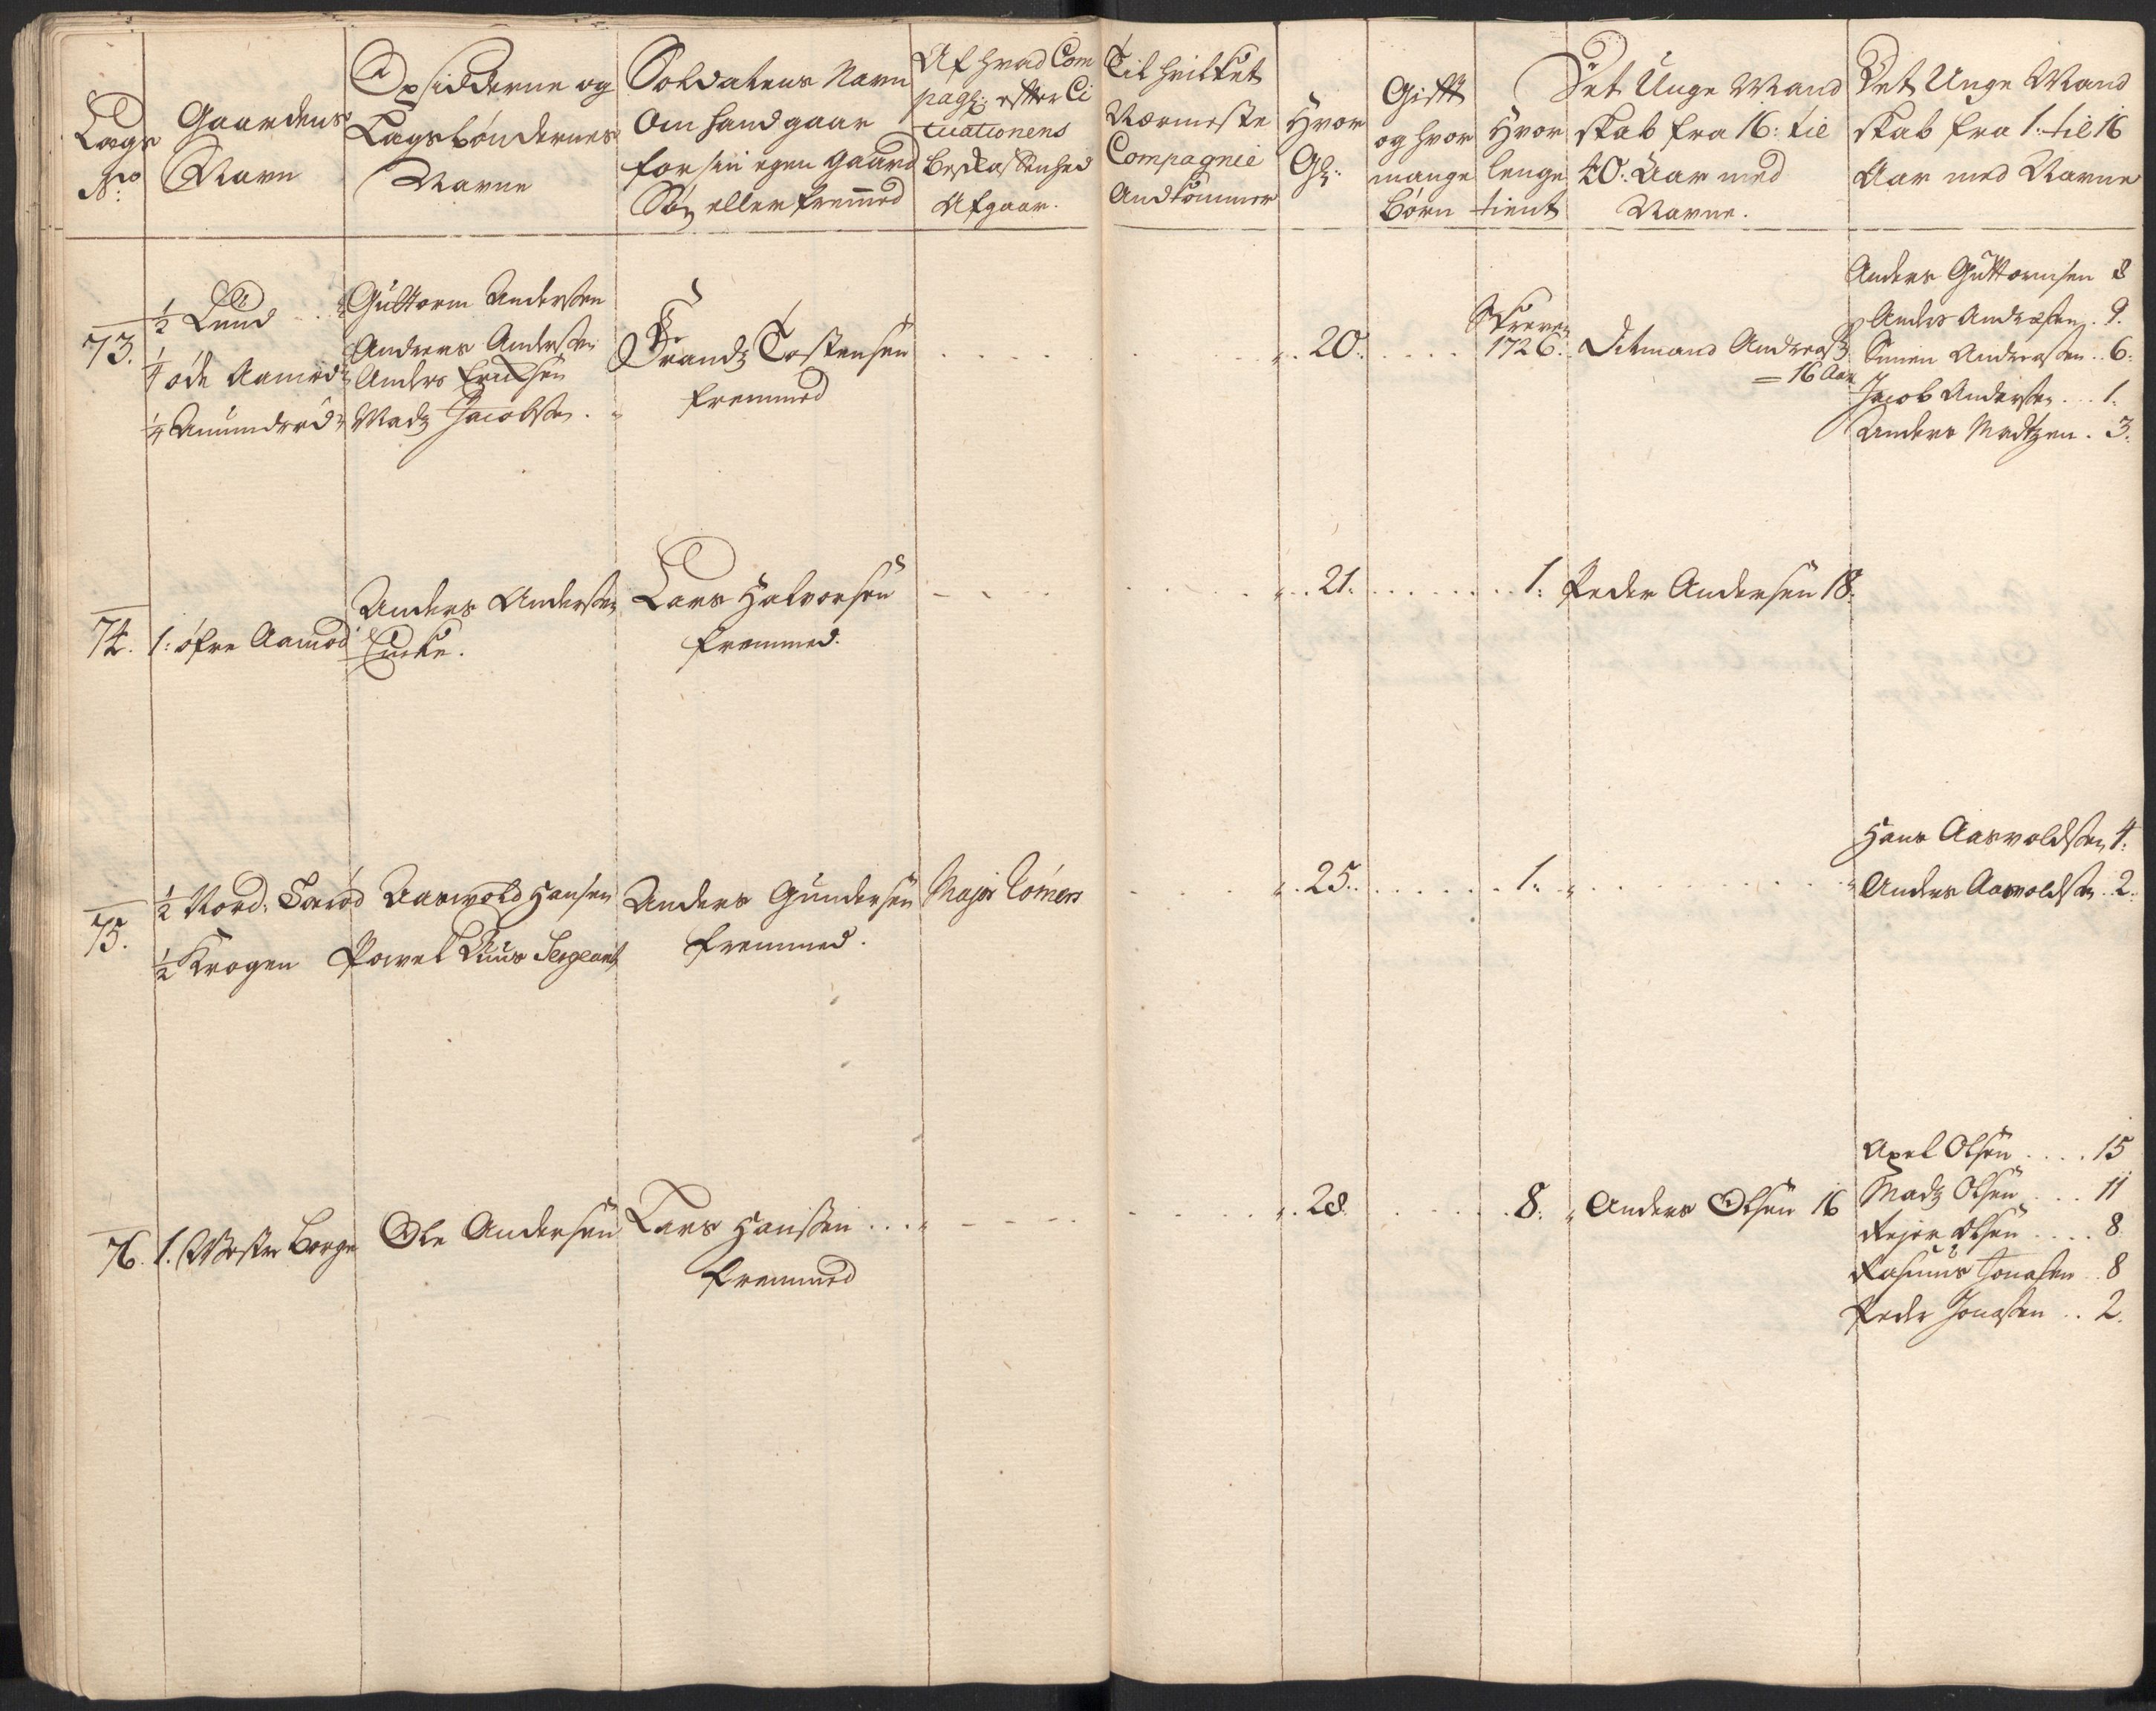 Lags
No:
Gaardens
Navn
Opsidderne og
Lagsbøndernes
Navne
Soldatens Navn
Om hand gaar
for sin egen Gaard
Søn eller fremmed
Af hvad Com
pagn: efter Ci
tuationens
beskaffenhed
Afgaar.
Til hvilket
Nærmeste
Compagnie
Andkommer
Hvor
Gl:
Gifft
og hvor
mange
børn
Hvor
lenge
tient
Det Unge Mand
skab fra 16: til
40: Aar med
Navne.
Det Unge Mand
skab fra 1: til 16
Aar med Navne
73.
1/2 Lund
1/4 øde Aamod
1/4 Amundrød
Guttorm Andersen
Andreas Andersen
Anders Erichsen
Madz Jacobsen
Frandz Tostensen
fremmed
20.
Skreven
1726.
Ditmand Andreas:
= 16 Aar
Anders Guttormsen 8
Anders Andreasen 9.
Simen Andreasen 6.
Jacob Andersen 1.
Anders Madtzen 3.
74.
1: øfre Aamod
Anders Andersen
Encke.
Lars Halvorsen
fremmed.
21.
1:
Peder Andersen 18.
75.
1/2 Nord.
1/2 Krogen
Aasvold Hansen
Povel Sergeant
Anders Gundersen
fremmed.
Major Cómers
25.
1.
Hans Aasvoldsen 4.
Anders Aasvoldsen 2.
76.
1. Westre Berge
Ole Andersen
Lars Hanssen
fremmed
28.
8.
Anders Olsen 16
Axel Olsen 15
Madz Olsen 11
Rejer Olsen 8
Rasmus Jonasen 8
Peder Jonasen 2.